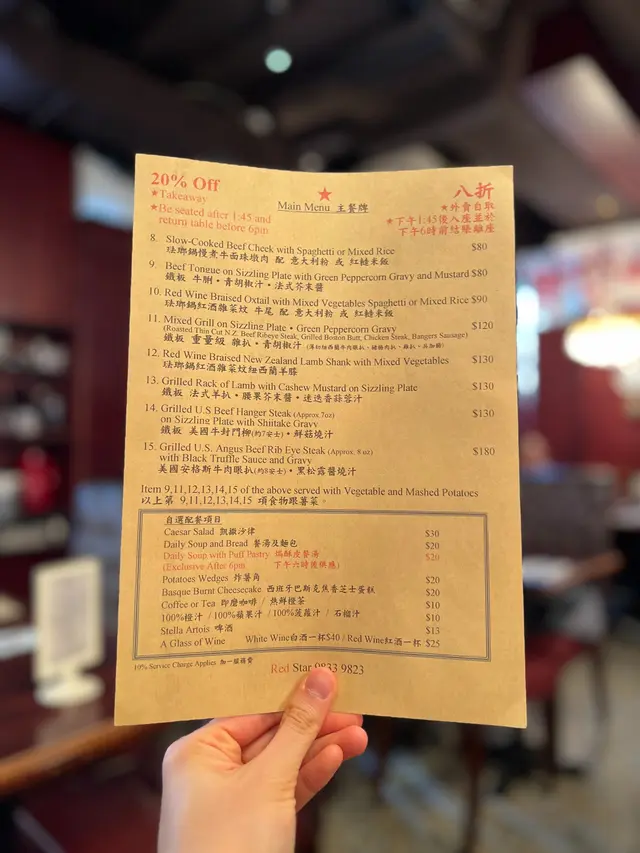 20% Off
★Takeaway
★Be seated after 1:45 and
return table before 6pm
★
Main Menu 主餐牌
八折
★外賣自取
★下午1:45後入座並於
下午6時前結賬離座
8. Slow-Cooked Beef Cheek with Spaghetti or Mixed Rice $80
琺瑯鍋慢煮牛面珠墩肉 配 意大利粉 或 紅糙米飯
9. Beef Tongue on Sizzling Plate with Green Peppercorn Gravy and Mustard $80
鐵板 牛脷・青胡椒汁・法式芥末醬
10. Red Wine Braised Oxtail with Mixed Vegetables Spaghetti or Mixed Rice $90
琺瑯鍋紅酒雜菜炆 牛尾 配 意大利粉 或 紅糙米飯
11. Mixed Grill on Sizzling Plate・Green Peppercorn Gravy $120
(Roasted Thin Cut N.Z. Beef Ribeye Steak, Grilled Boston Butt, Chicken Steak, Bangers Sausage)
鐵板 重量級 雜扒・青胡椒汁
12. Red Wine Braised New Zealand Lamb Shank with Mixed Vegetables $130
琺瑯鍋紅酒雜菜炆紐西蘭羊膝
13. Grilled Rack of Lamb with Cashew Mustard on Sizzling Plate $130
鐵板 法式羊扒・腰果芥末醬・迷迭香蒜蓉汁
14. Grilled U.S Beef Hanger Steak (Approx.7oz) $130
on Sizzling Plate with Shiitake Gravy
鐵板 美國牛封門柳(約7安士)・鮮菇燒汁
15. Grilled U.S. Angus Beef Rib Eye Steak (Approx. 8 oz) $180
with Black Truffle Sauce and Gravy
美國安格斯牛肉眼扒(約8安士)・黑松露醬燒汁
Item 9,11,12,13,14,15 of the above served with Vegetable and Mashed Potatoes
以上第 9,11,12,13,14,15 項食物跟薯菜。
自選配餐項目
Caesar Salad 凱撒沙律 $30
Daily Soup and Bread 餐湯及麵包 $20
Daily Soup with Puff Pastry 焗酥皮餐湯 $20
(Exclusive After 6pm 下午六時後供應)
Potatoes Wedges 炸薯角 $20
Basque Burnt Cheesecake 西班牙巴斯克焦香芝士蛋糕 $20
Coffee or Tea 即磨咖啡 / 熱鮮橙茶 $10
100%橙汁 / 100%蘋果汁 / 100%菠蘿汁 / 石榴汁 $10
Stella Artois 啤酒 $13
A Glass of Wine White Wine白酒一杯$40 / Red Wine紅酒一杯 $25
10% Service Charge Applies 加一服務費
Red Star 9833 9823